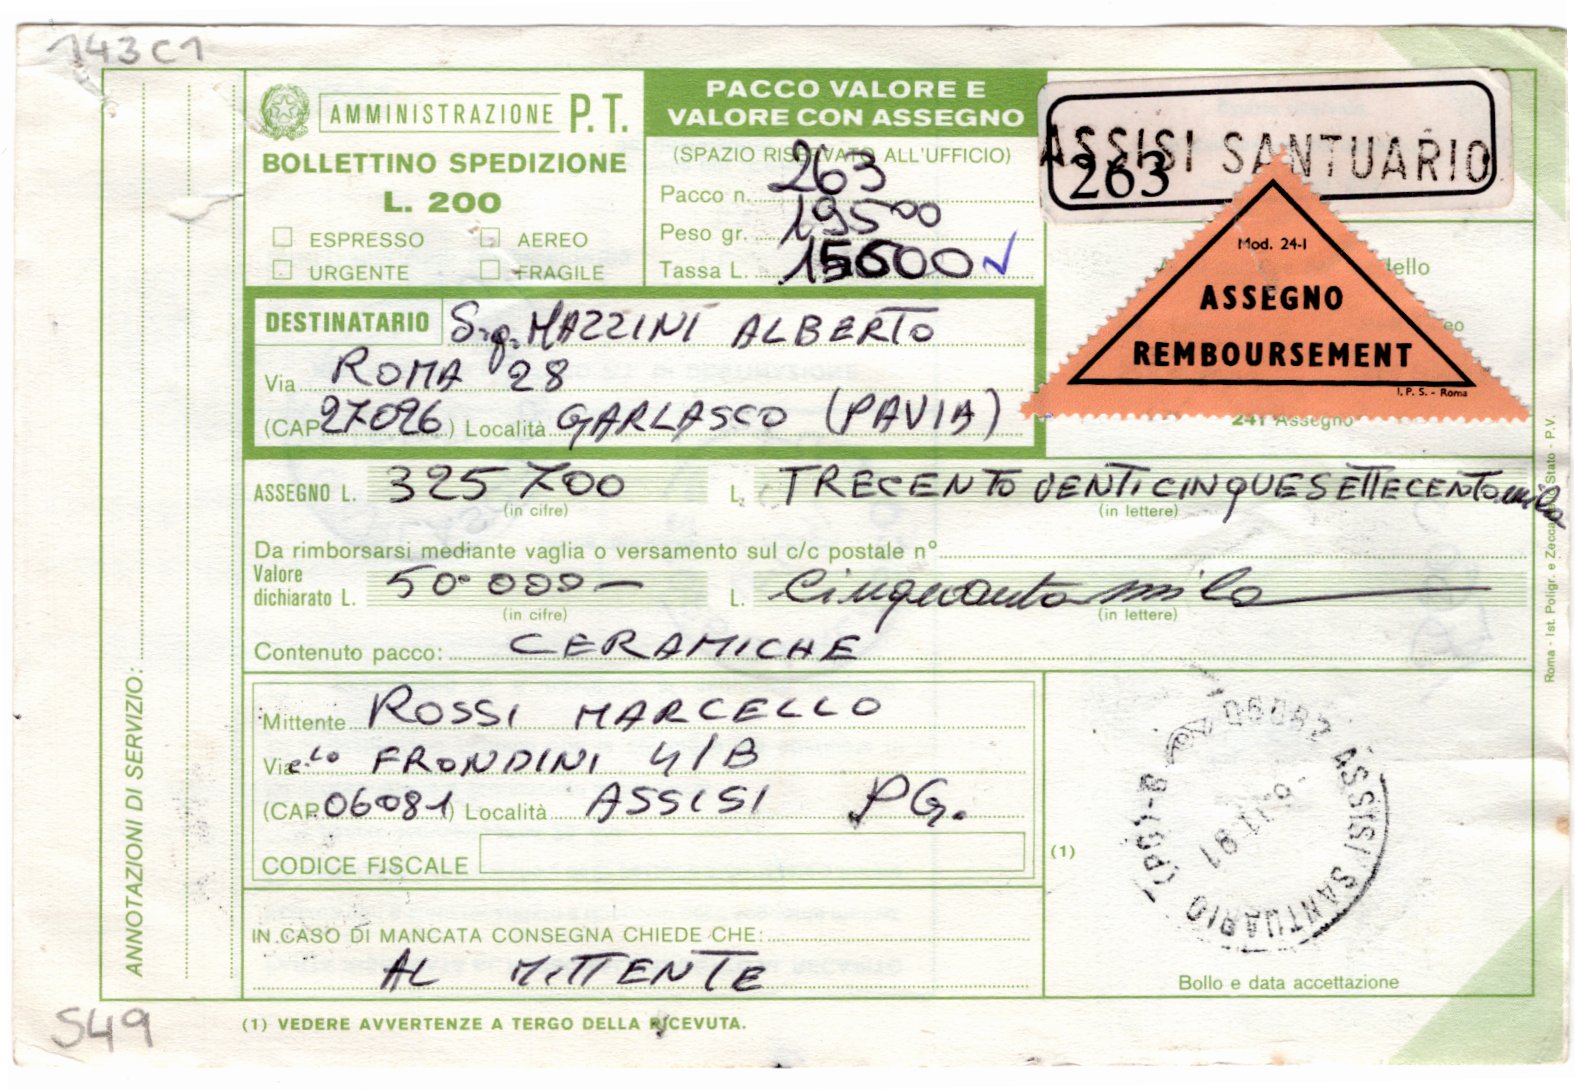 143C1
AMMINISTRAZIONE P.T.
BOLLETTINO SPEDIZIONE
L. 200
ESPRESSO AEREO
URGENTE FRAGILE
PACCO VALORE E
VALORE CON ASSEGNO
(SPAZIO RISERVATO ALL'UFFICIO)
Pacco n. 263
Peso gr. 19500
Tassa L. 15600
ASSISI SANTUARIO
263
Mod. 24-I
ASSEGNO
REMBOURSEMENT
I.P.S. - Roma
241 Assegno
DESTINATARIO Sig. MAZZINI ALBERTO
Via ROMA 28
(CAP 27026) Località GARLASCO (PAVIA)
ASSEGNO L. 325700 L. TRECENTOVENTICINQUESETTECENTOmila
(in cifre) (in lettere)
Da rimborsarsi mediante vaglia o versamento sul c/c postale n°
Valore
dichiarato L. 50.000— L. Cinquantamila
(in cifre) (in lettere)
Contenuto pacco: CERAMICHE
Mittente ROSSI MARCELLO
Via FRONDINI 4/B
(CAP 06081) Località ASSISI PG.
CODICE FISCALE
(1)
IN CASO DI MANCATA CONSEGNA CHIEDE CHE:
AL MITTENTE
06082 ASSISI SANTUARIO (PG)-B
11.91
Bollo e data accettazione
ANNOTAZIONI DI SERVIZIO:
Roma - Ist. Poligr. e Zecca Stato - P.V.
S49
(1) VEDERE AVVERTENZE A TERGO DELLA RICEVUTA.